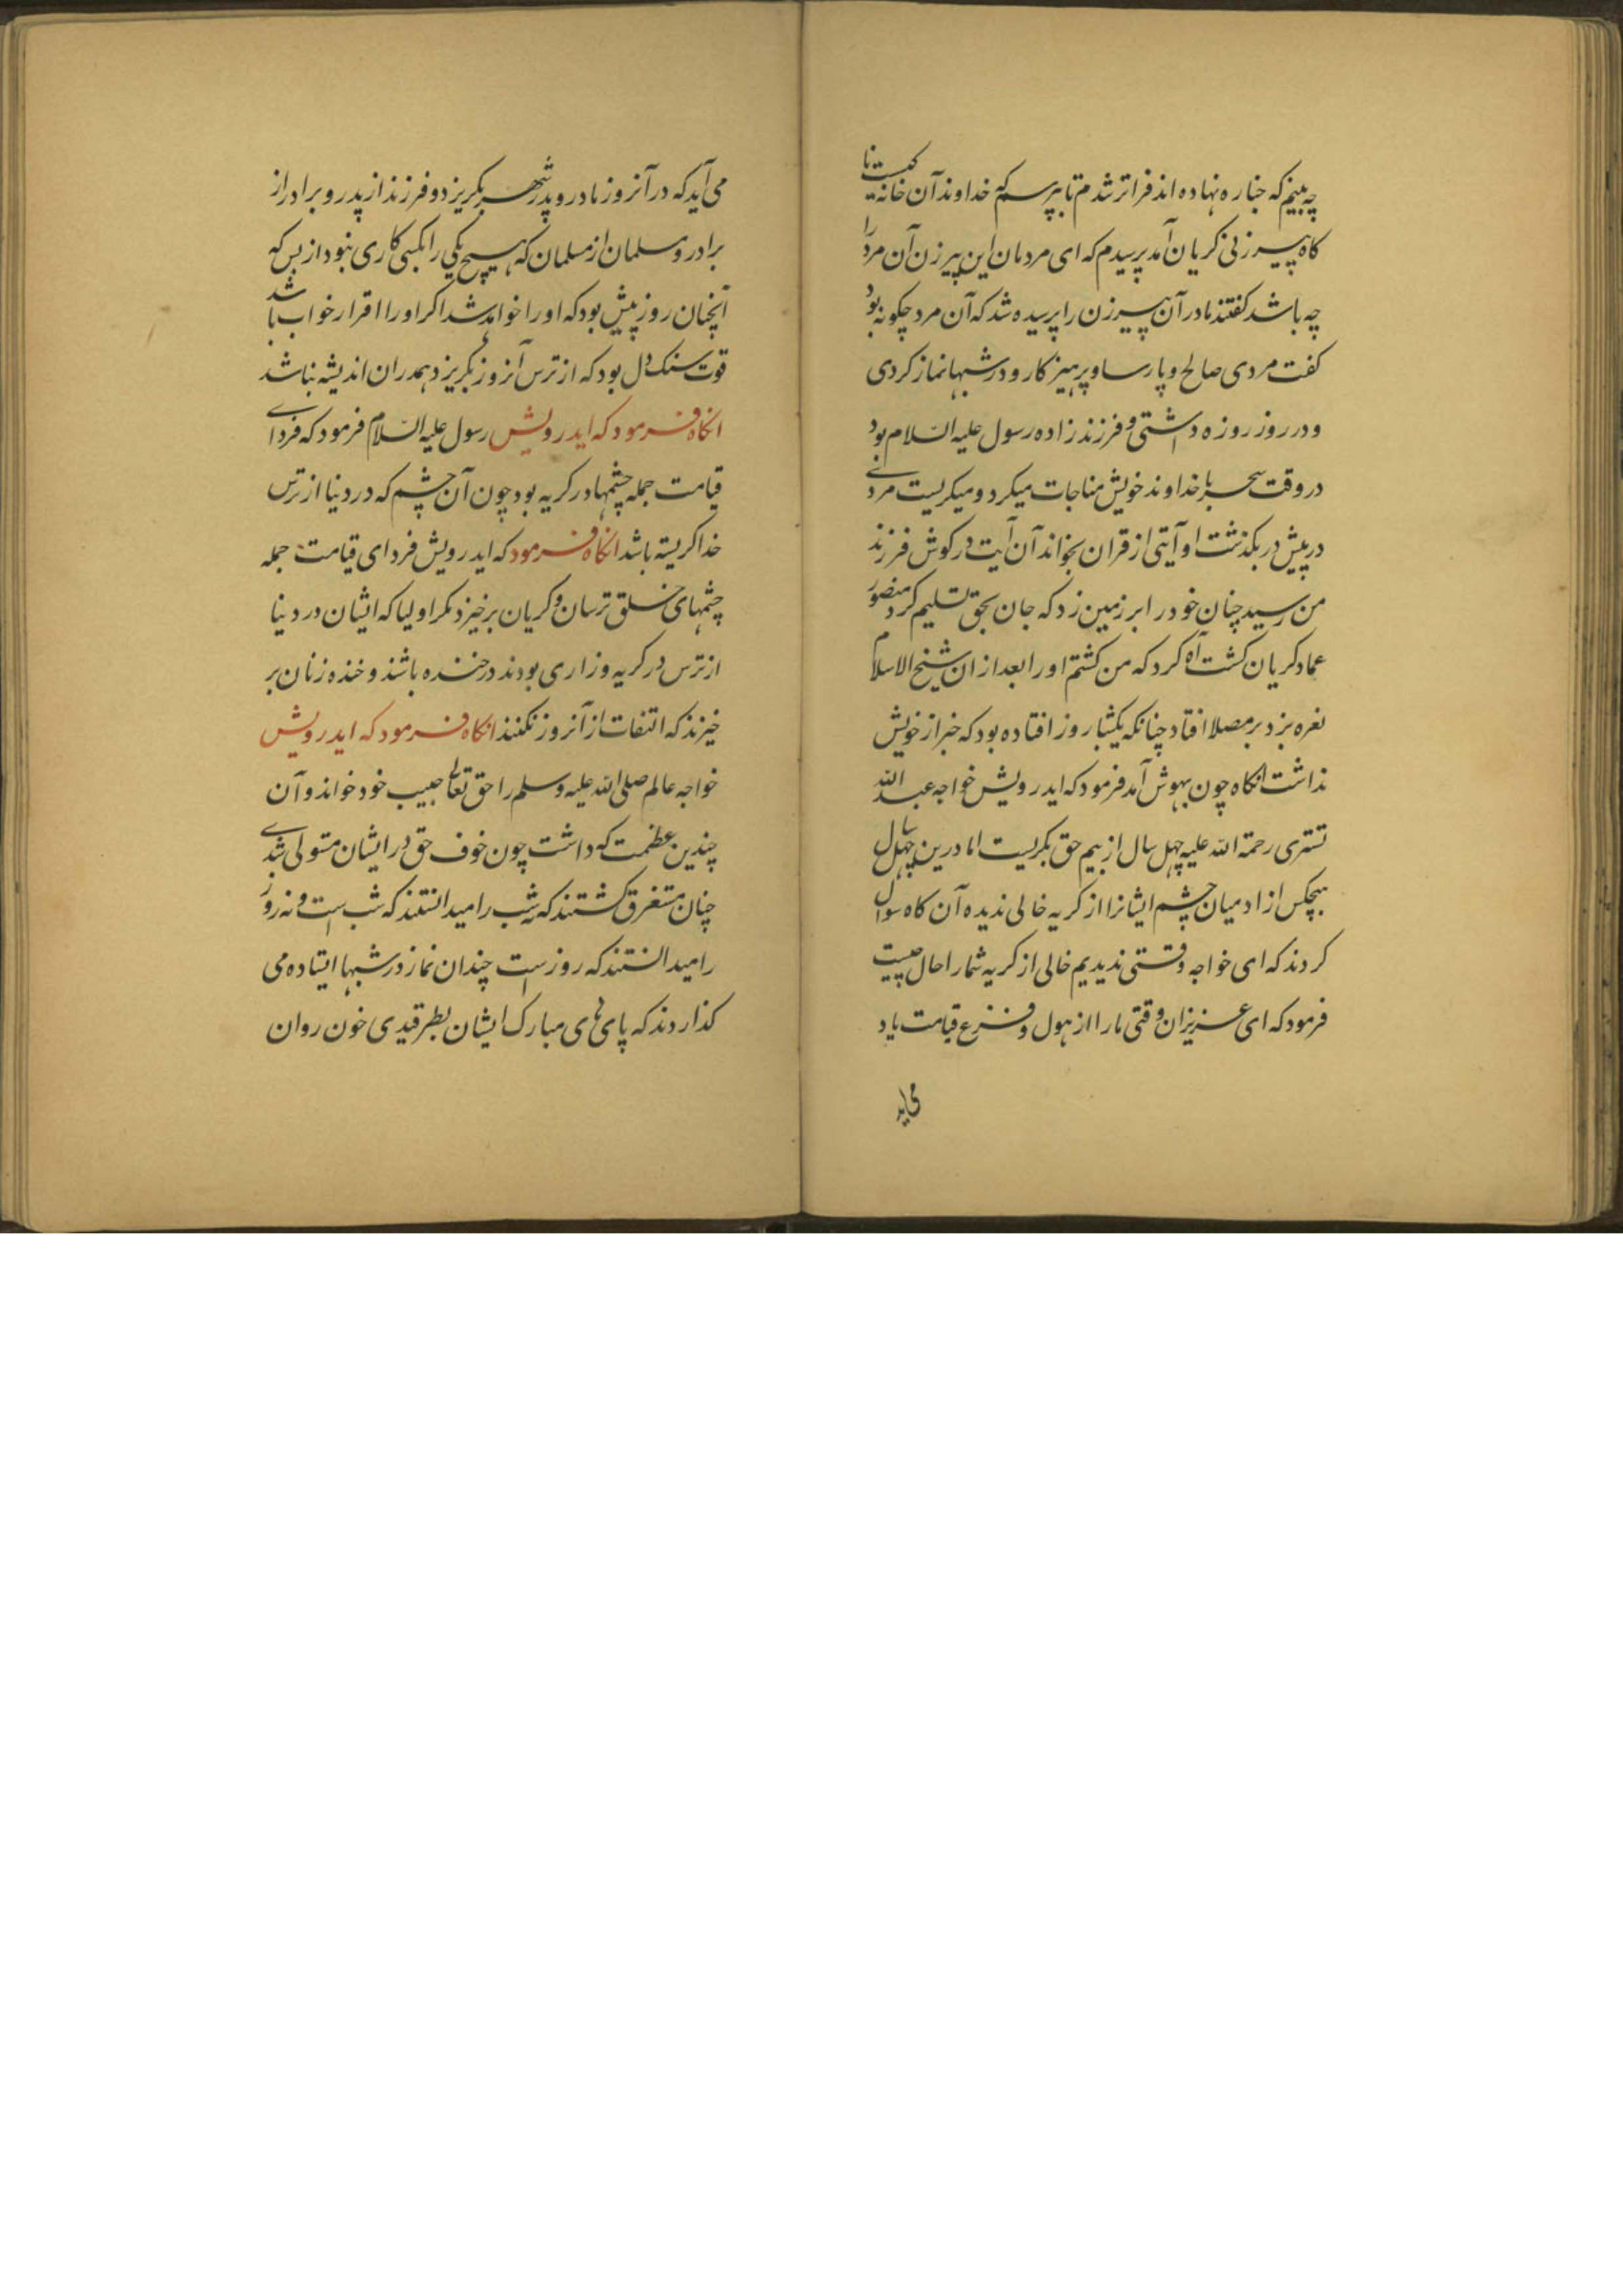 چه بینم که جنازه نهاده اند فراتر شدم تا بپرسم که خداوند آن خانه کیست نا
کاه پیرزنی کریان آمد پرسیدم که ای مردمان این پیرزن آن مرد را
چه باشد کفتند مادر آن پیرزن را پرسیده شد که آن مرد چکونه بود
کفت مردی صالح و پارسا و پرهیزکار و در شبها نماز کردی
و در روز روزه داشتی و فرزندزاده رسول علیه السّلام بود
در وقت سحر با خداوند خویش مناجات میکرد و میکریست مردی
در پیش در بکذشت او آیتی از قران بخواند آن آیت در کوش فرزند
من رسید چنان خود را بر زمین زد که جان بحق تسلیم کرد منصور
عماد کریان کشت آه کرد که من کشتم او را بعد از ان شیخ الاسلام
نعره بزد بر مصلا افتاد چنانکه یکشبا روز افتاده بود که خبر از خویش
نداشت انکاه چون بهوش آمد فرمود که ایدرویش خواجه عبد الله
تستری رحمة الله علیه چهل سال از بیم حق بکریست اما درین چهل سال
هیچکس از ادمیان چشم ایشانرا از کریه خالی ندیده آن کاه سوال
کردند که ای خواجه وقتی ندیدیم خالی از کریه شمارا حال چیست
فرمود که ای عزیزان وقتی ما را از هول و فزع قیامت یاد
می اید
می آید که در آنروز مادر و پدر بکریزد و فرزند از پدر و برادر از
برادر و مسلمان از مسلمان که هیچ یکی را بکسی کاری نبود از بس که
آنچنان روز پیش بود که او را خواهد شد اکر او را اقرار خواب باشد
قوت سنک دل بود که از ترس آنروز بکریزد همدران اندیشه بباشد
انکاه فرمود که ایدرویش رسول علیه السّلام فرمود که فردای
قیامت جمله چشمها در کریه بود چون آن چشم که در دنیا از ترس
خدا کریسته باشد انکاه فرمود که ایدرویش فردای قیامت جمله
چشمهای خلق ترسان و کریان برخیزد مکر اولیا که ایشان در دنیا
از ترس در کریه و زاری بودند در خنده باشند و خنده زنان بر
خیزند که التفات از آنروز نکنند انکاه فرمود که ایدرویش
خواجه عالم صلی الله علیه وسلم را حق تعالی حبیب خود خواند و آن
چندین عظمت که داشت چون خوف حق در ایشان مستولی شدی
چنان مستغرق کشتند که نه شب را میدانستند که شب است و نه روز
را میدانستند که روز است چندان نماز در شبها ایستاده می
کذاردند که پای های مبارک ایشان بطرقیدی خون روان